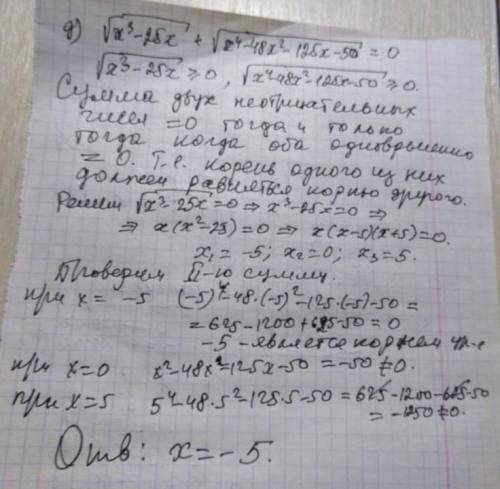 д) √x³-25x + √x⁴-48x²-125x-50 = 0
√x³-25x ≥ 0, √x⁴-48x²-125x-50 ≥ 0.
Сумма двух неотрицательных
чисел =0 тогда и только
тогда когда оба одновременно
= 0. Т.е. корень одного из них
должен равняться корню другого.
Решим √x³-25x = 0 ⇒ x³-25x=0 ⇒
⇒ x(x²-25)=0 ⇒ x(x-5)(x+5)=0.
x₁ = -5; x₂=0; x₃=5.
Проверим II-ю сумму.
при x = -5 (-5)⁴-48·(-5)²-125·(-5)-50 =
= 625-1200+625-50 = 0
-5 - является корнем
при x=0 x²-48x²-125x-50 = -50 ≠0.
при x=5 5⁴-48·5²-125·5-50 = 625-1200-625-50
= -1250≠0.
Отв: x = -5.